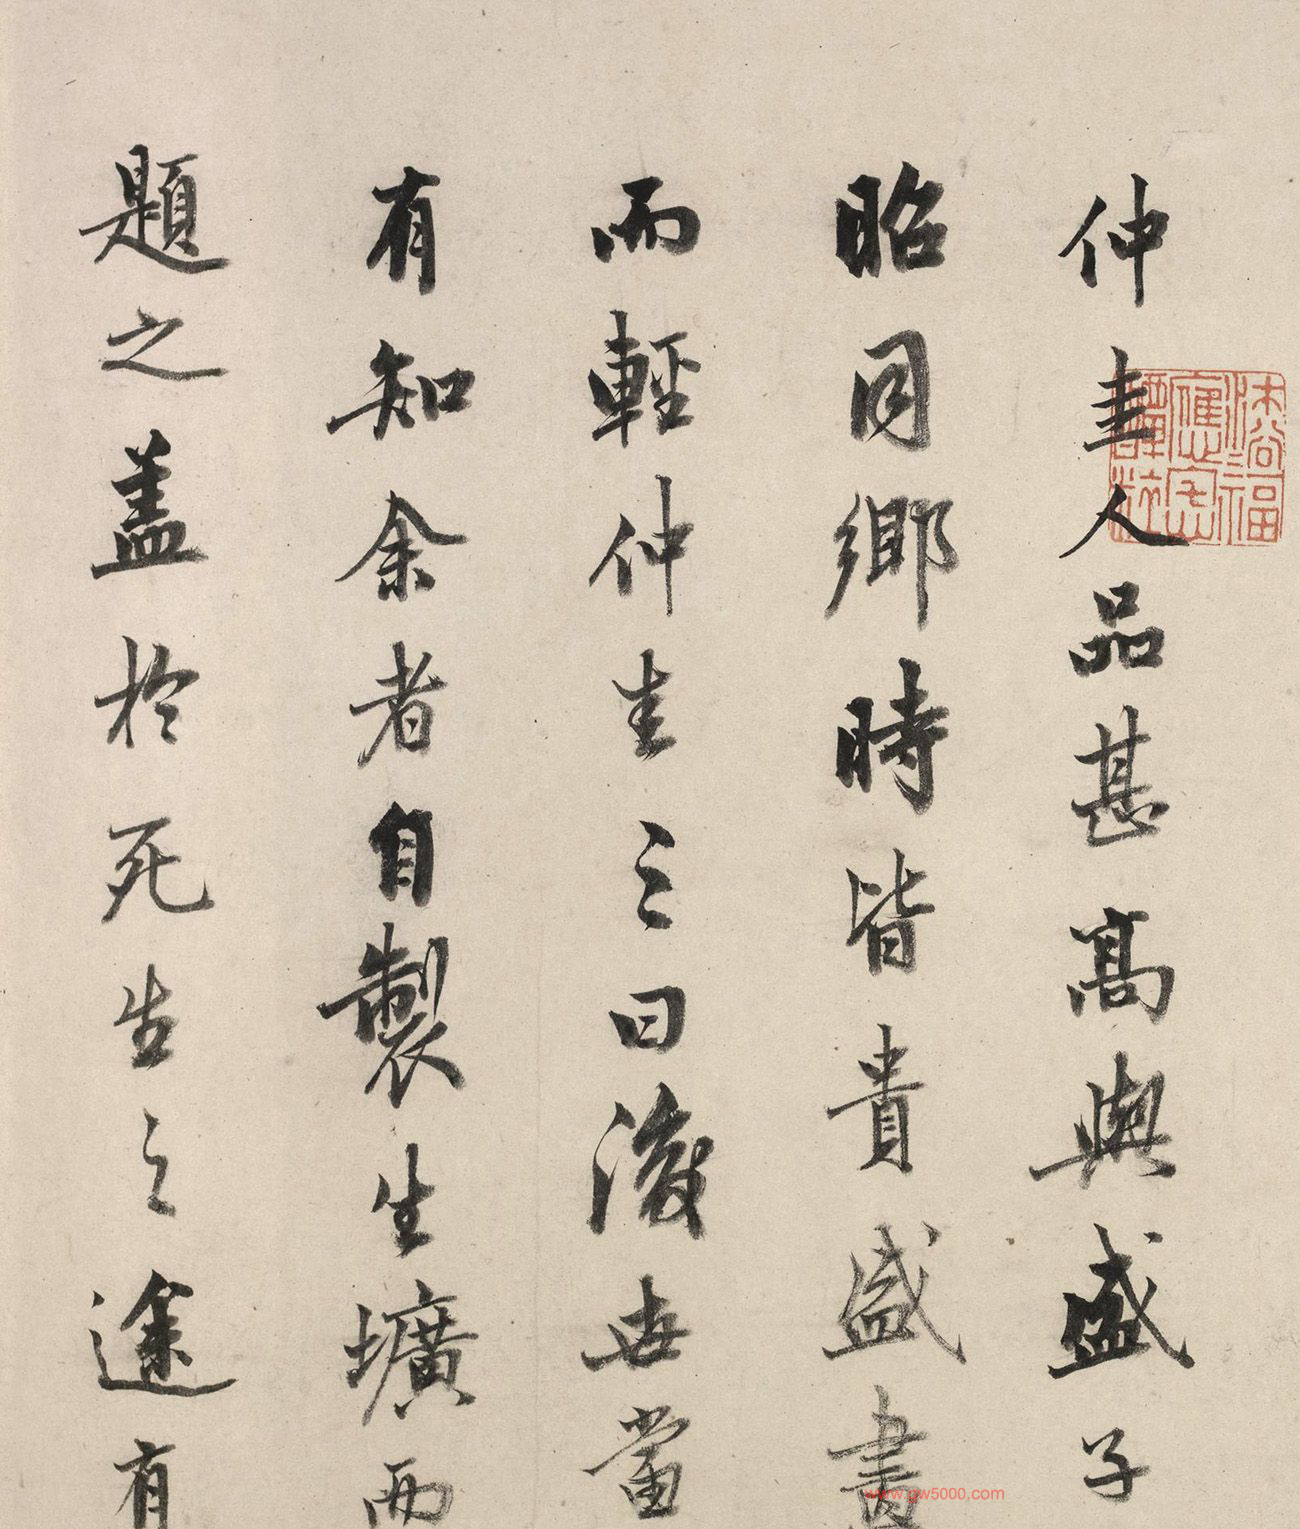 仲圭人品甚高與盛子
昭同鄉時皆貴盛畫
而輕仲圭之曰後世當
有知余者自製生壙而
題之蓋於死生之途有
www.gw5000.com